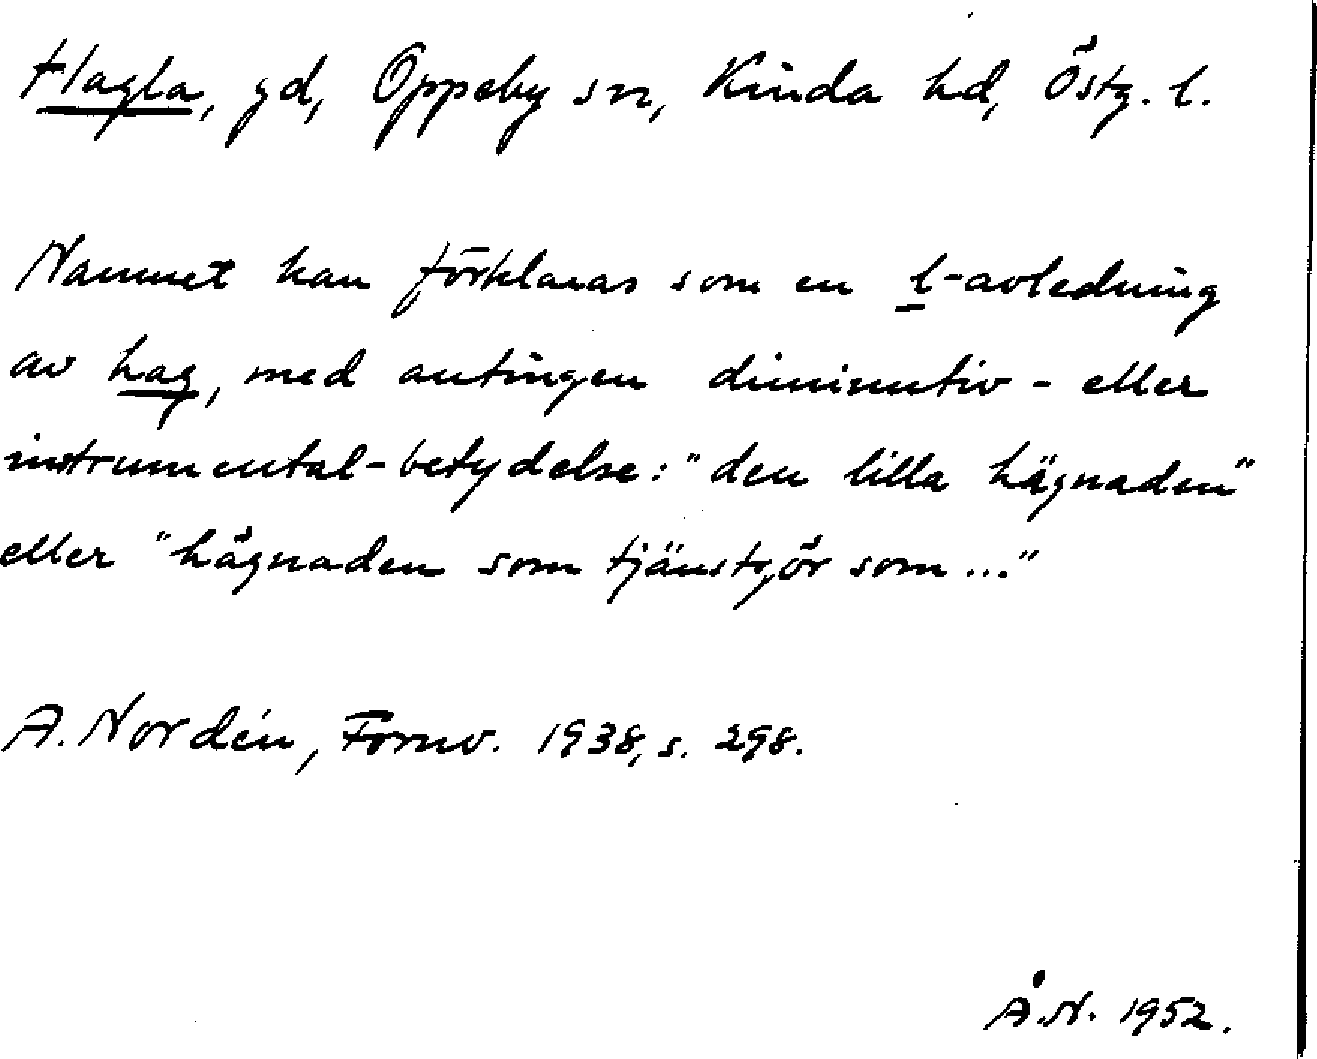 Hagla, gd, Oppeby sn, Kinda hd, Östg. l.
Namnet kan förklaras som en l-avledning
av hag, med antingen diminutiv- eller
instrumental-betydelse: "den lilla hägnaden"
eller "hägnaden som tjänstgör som..."
A. Nordén, Fornv. 1938, s. 298.
Å.N. 1952.